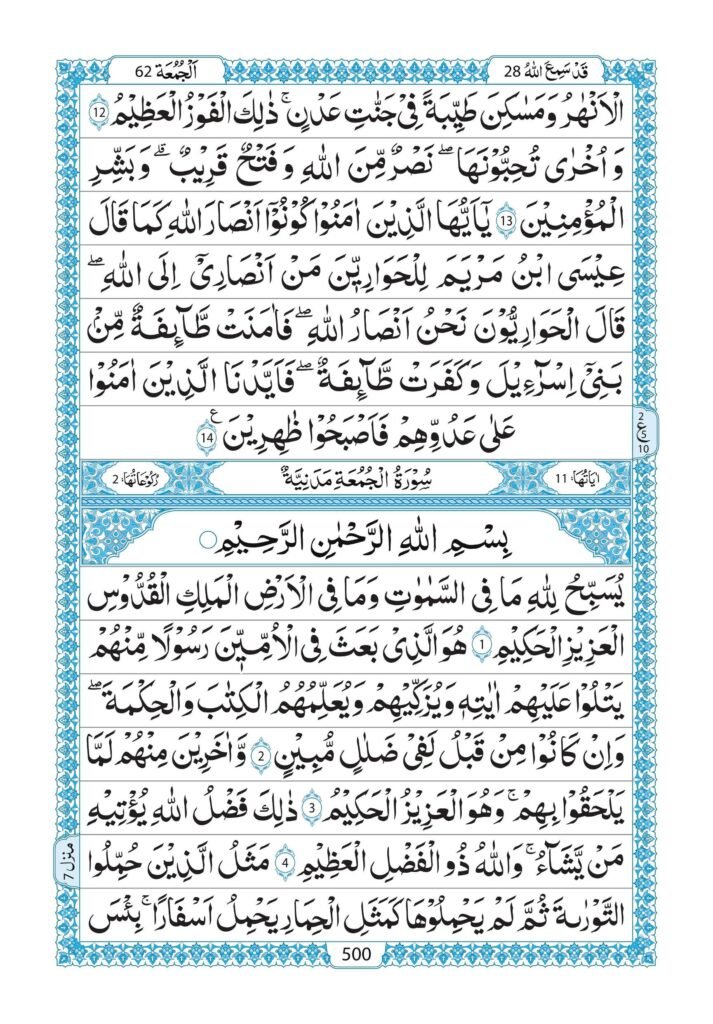 قَدْ سَمِعَ اللهُ 28
اَلْجُمُعَة 62
الْاَنْهٰرُ وَمَسٰكِنَ طَيِّبَةً فِيْ جَنّٰتِ عَدْنٍ ۚ ذٰلِكَ الْفَوْزُ الْعَظِيْمُ 12
وَ اُخْرٰى تُحِبُّوْنَهَا ۖ نَصْرٌ مِّنَ اللهِ وَ فَتْحٌ قَرِيْبٌ ؕ وَ بَشِّرِ
الْمُؤْمِنِيْنَ 13 يٰۤاَيُّهَا الَّذِيْنَ اٰمَنُوْا كُوْنُوْۤا اَنْصَارَ اللهِ كَمَا قَالَ
عِيْسَى ابْنُ مَرْيَمَ لِلْحَوَارِيّٖنَ مَنْ اَنْصَارِيْۤ اِلَى اللهِ ۖ
قَالَ الْحَوَارِيُّوْنَ نَحْنُ اَنْصَارُ اللهِ ۖ فَاٰمَنَتْ طَّآئِفَةٌ مِّنْۢ
بَنِيْۤ اِسْرَآءِيْلَ وَ كَفَرَتْ طَّآئِفَةٌ ۖ فَاَيَّدْنَا الَّذِيْنَ اٰمَنُوْا
عَلٰى عَدُوِّهِمْ فَاَصْبَحُوْا ظٰهِرِيْنَ 14
2
ع 5
10
اٰيَاتُهَا: 11
سُوْرَةُ الْجُمُعَةِ مَدَنِيَّةٌ
رُكُوْعَاتُهَا: 2
بِسْمِ اللهِ الرَّحْمٰنِ الرَّحِيْمِ
يُسَبِّحُ لِلّٰهِ مَا فِى السَّمٰوٰتِ وَمَا فِى الْاَرْضِ الْمَلِكِ الْقُدُّوْسِ
الْعَزِيْزِ الْحَكِيْمِ 1 هُوَ الَّذِيْ بَعَثَ فِى الْاُمِّيّٖنَ رَسُوْلًا مِّنْهُمْ
يَتْلُوْا عَلَيْهِمْ اٰيٰتِهٖ وَيُزَكِّيْهِمْ وَيُعَلِّمُهُمُ الْكِتٰبَ وَالْحِكْمَةَ ۖ
وَاِنْ كَانُوْا مِنْ قَبْلُ لَفِيْ ضَلٰلٍ مُّبِيْنٍ 2 وَّاٰخَرِيْنَ مِنْهُمْ لَمَّا
يَلْحَقُوْا بِهِمْ ۚ وَهُوَ الْعَزِيْزُ الْحَكِيْمُ 3 ذٰلِكَ فَضْلُ اللهِ يُؤْتِيْهِ
مَنْ يَّشَآءُ ۚ وَاللهُ ذُو الْفَضْلِ الْعَظِيْمِ 4 مَثَلُ الَّذِيْنَ حُمِّلُوا
منزل 7
التَّوْرٰىةَ ثُمَّ لَمْ يَحْمِلُوْهَا كَمَثَلِ الْحِمَارِ يَحْمِلُ اَسْفَارًا ۚ بِئْسَ
500